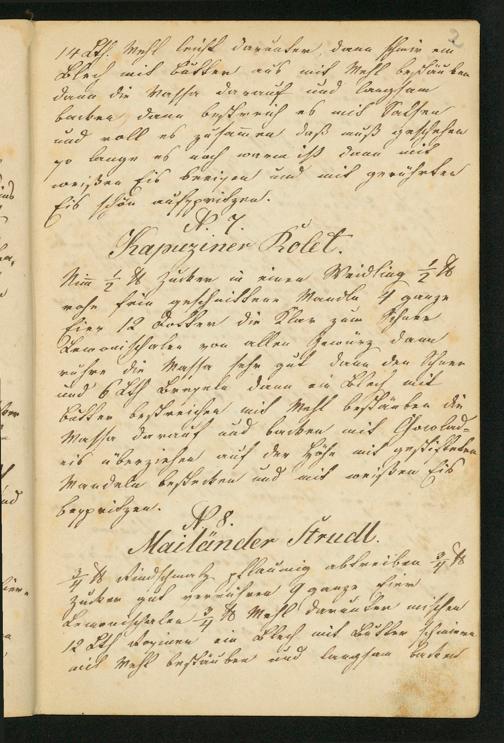 2
14 Lth. Mehl leicht darunter, dann schmir ein
Blech mit Butter aus mit Mehl bestäuben
dann die Massa darauf und langsam
backen, dann bestreich es mit Salsen
und roll es zusammen daß muß geschehen
so lange es noch warm ist dann mit
weißen Eis beeisen und mit gerührten
Eis schön aufspritzen.
N. 7.
Kapuziner Kolet.
Nim 1/2 ℔ Zucker in einen Weidling 1/2 ℔
rohe fein geschnittene Mandln 4 ganze
Eier 12 Dotter die Klar zum Schnee
Lemonischalen von allen Gewürz dann
rühre die Massa sehr gut dann den Schnee
und 6 Lth Bröseln dann ein Blech mit
Butter bestreichen mit Mehl bestäuben die
Massa darauf und backen mit Chocolad=
eis überziehen auf der Höhe mit gestifteten
Mandeln bestecken und mit weißen Eis
bespritzen.
N 8.
Mailänder Strudl.
3/4 ℔ Rindschmalz pflaumig abtreiben 3/4 ℔
Zucker gut verrühren 9 ganze Eier
Lemonischalen 3/4 ℔ Mehl darunter mischen
12 Lth ein Blech mit Butter schmieren
mit Mehl bestäuben und langsam backen